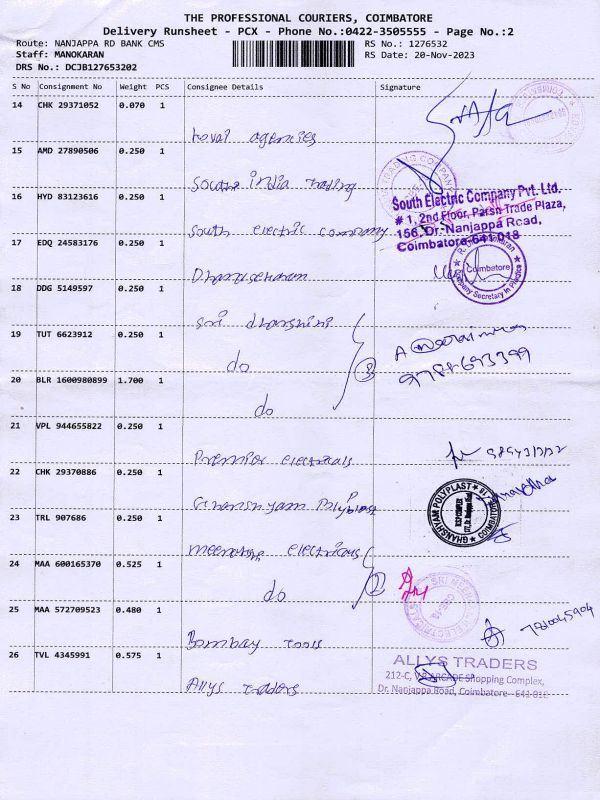 THE PROFESSIONAL COURIERS, COIMBATORE
Delivery Runsheet - PCX - Phone No.:0422-3505555 - Page No.:2
Route: NANJAPPA RD BANK CMS RS No.: 1276532
Staff: MANOKARAN RS Date: 20-Nov-2023
DRS No.: DCJB127653202
S No Consignment No Weight PCS Consignee Details Signature
14 CHK 29371052 0.070 1
Loyal agencies
15 AMD 27890506 0.250 1
South India Trading
16 HYD 83123616 0.250 1
South Electric Company Pvt. Ltd.
# 1, 2nd Floor, Parsn Trade Plaza,
156, Dr. Nanjappa Road,
Coimbatore-641 018
South electric company
17 EDQ 24583176 0.250 1
Coimbatore
Company Secretary in Practice
Dhanasekaran
18 DDG 5149597 0.250 1
Sri dharshini
19 TUT 6623912 0.250 1
do
3
20 BLR 1600980899 1.700 1
do
21 VPL 944655822 0.250 1
Premier electricals
22 CHK 29370886 0.250 1
Ghanshyam Polyplast
GHANSHYAM POLYPLAST
COIMBATORE - 18
23 TRL 907686 0.250 1
meenatchi electricals
24 MAA 600165370 0.525 1
do
2
25 MAA 572709523 0.480 1
Bombay Tools
7810045904
26 TVL 4345991 0.575 1
Allys traders
ALLYS TRADERS
212-C, V.R ARCADE Shopping Complex,
Dr. Nanjappa Road, Coimbatore - 641 018